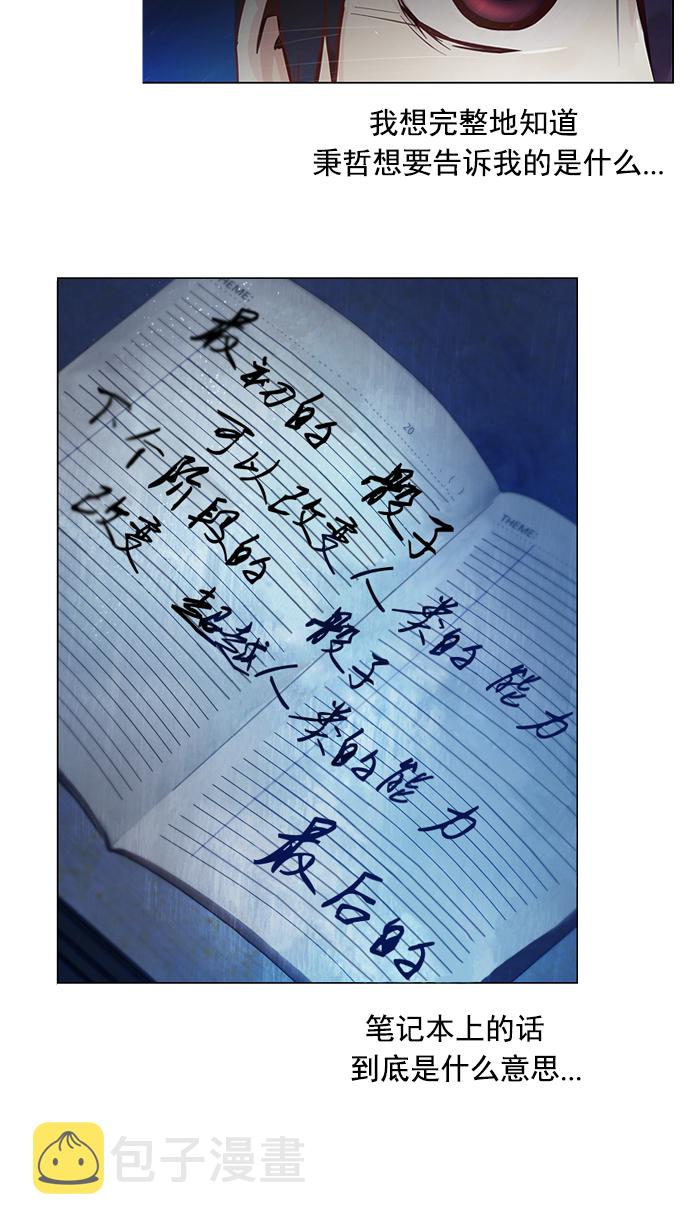 我想完整地知道
秉哲想要告诉我的是什么...
THEME:
最初的 骰子
可以改变人类的能力
20
( )
THEME:
下个阶段的 骰子
改变 超越人类的能力
最后的
笔记本上的话
到底是什么意思...
包子漫畫